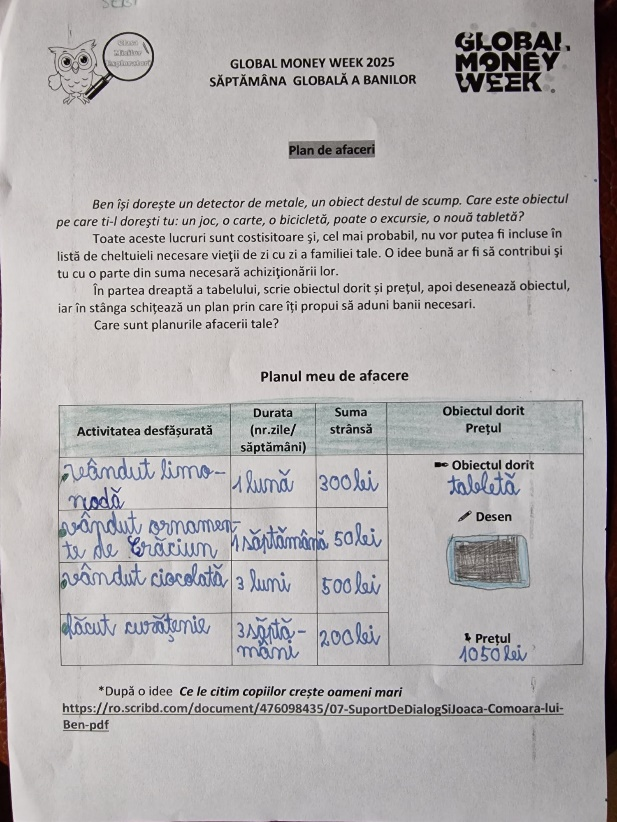 GLOBAL MONEY WEEK 2025
SĂPTĂMÂNA GLOBALĂ A BANILOR
GLOBAL
MONEY
WEEK
Plan de afaceri
Ben își dorește un detector de metale, un obiect destul de scump. Care este obiectul
pe care ti-l dorești tu: un joc, o carte, o bicicletă, poate o excursie, o nouă tabletă?
Toate aceste lucruri sunt costisitoare şi, cel mai probabil, nu vor putea fi incluse în
listă de cheltuieli necesare vieţii de zi cu zi a familiei tale. O idee bună ar fi să contribui şi
tu cu o parte din suma necesară achiziţionării lor.
În partea dreaptă a tabelului, scrie obiectul dorit și prețul, apoi desenează obiectul,
iar în stânga schițează un plan prin care îți propui să aduni banii necesari.
Care sunt planurile afacerii tale?
Planul meu de afacere
Activitatea desfăşurată
Durata
(nr.zile/
săptămâni)
Suma
strânsă
Obiectul dorit
Prețul
vândut limo-
nodă
1 lună
300 lei
Obiectul dorit
tabletă
vândut ornamen-
te de Crăciun
1 săptămână
50 lei
Desen
vândut ciocolată
3 luni
500 lei
făcut curățenie
3 săptă-
mâni
200 lei
Prețul
1050 lei
*După o idee Ce le citim copiilor crește oameni mari
https://ro.scribd.com/document/476098435/07-SuportDeDialogSiJoaca-Comoara-lui-
Ben-pdf